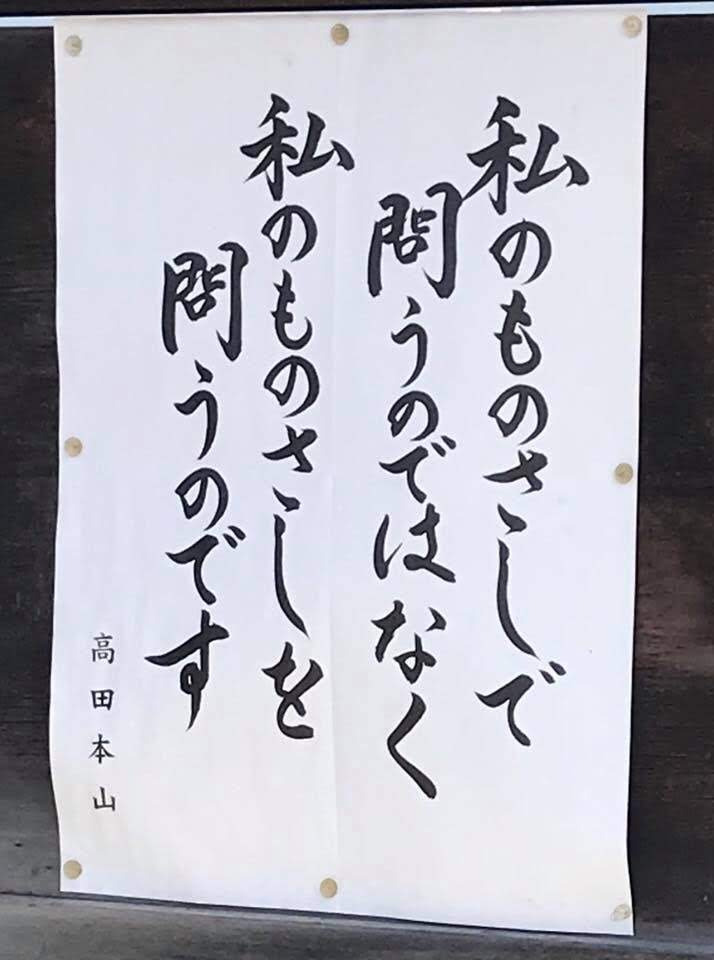 私のものさしで
問うのではなく
私のものさしを
問うのです
高田本山